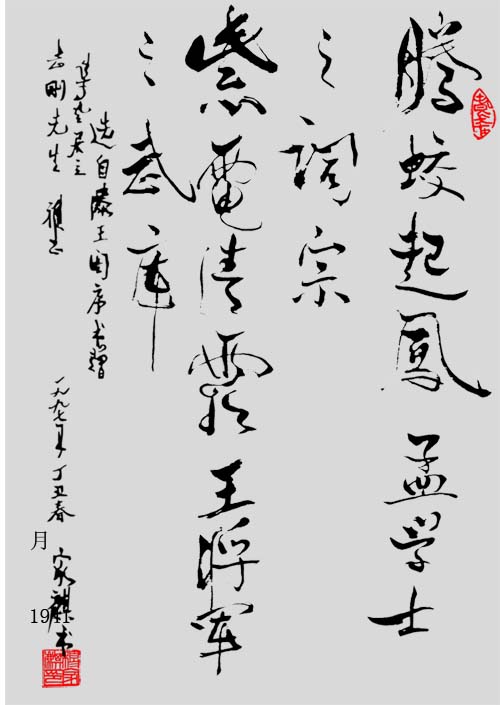 騰蛟起鳳孟学士
之词宗
紫電清霜王将军
之武库
选自滕王阁序书赠
志刚先生雅正
一九九七年丁丑春
月